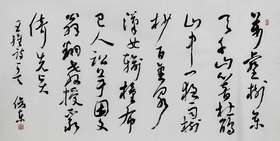 萬壑樹參
天千山響杜鵑
山中一夜雨樹
杪百重泉
漢女輸橦布
巴人訟芋田文
翁翻教授不敢
倚先賢
王維詩